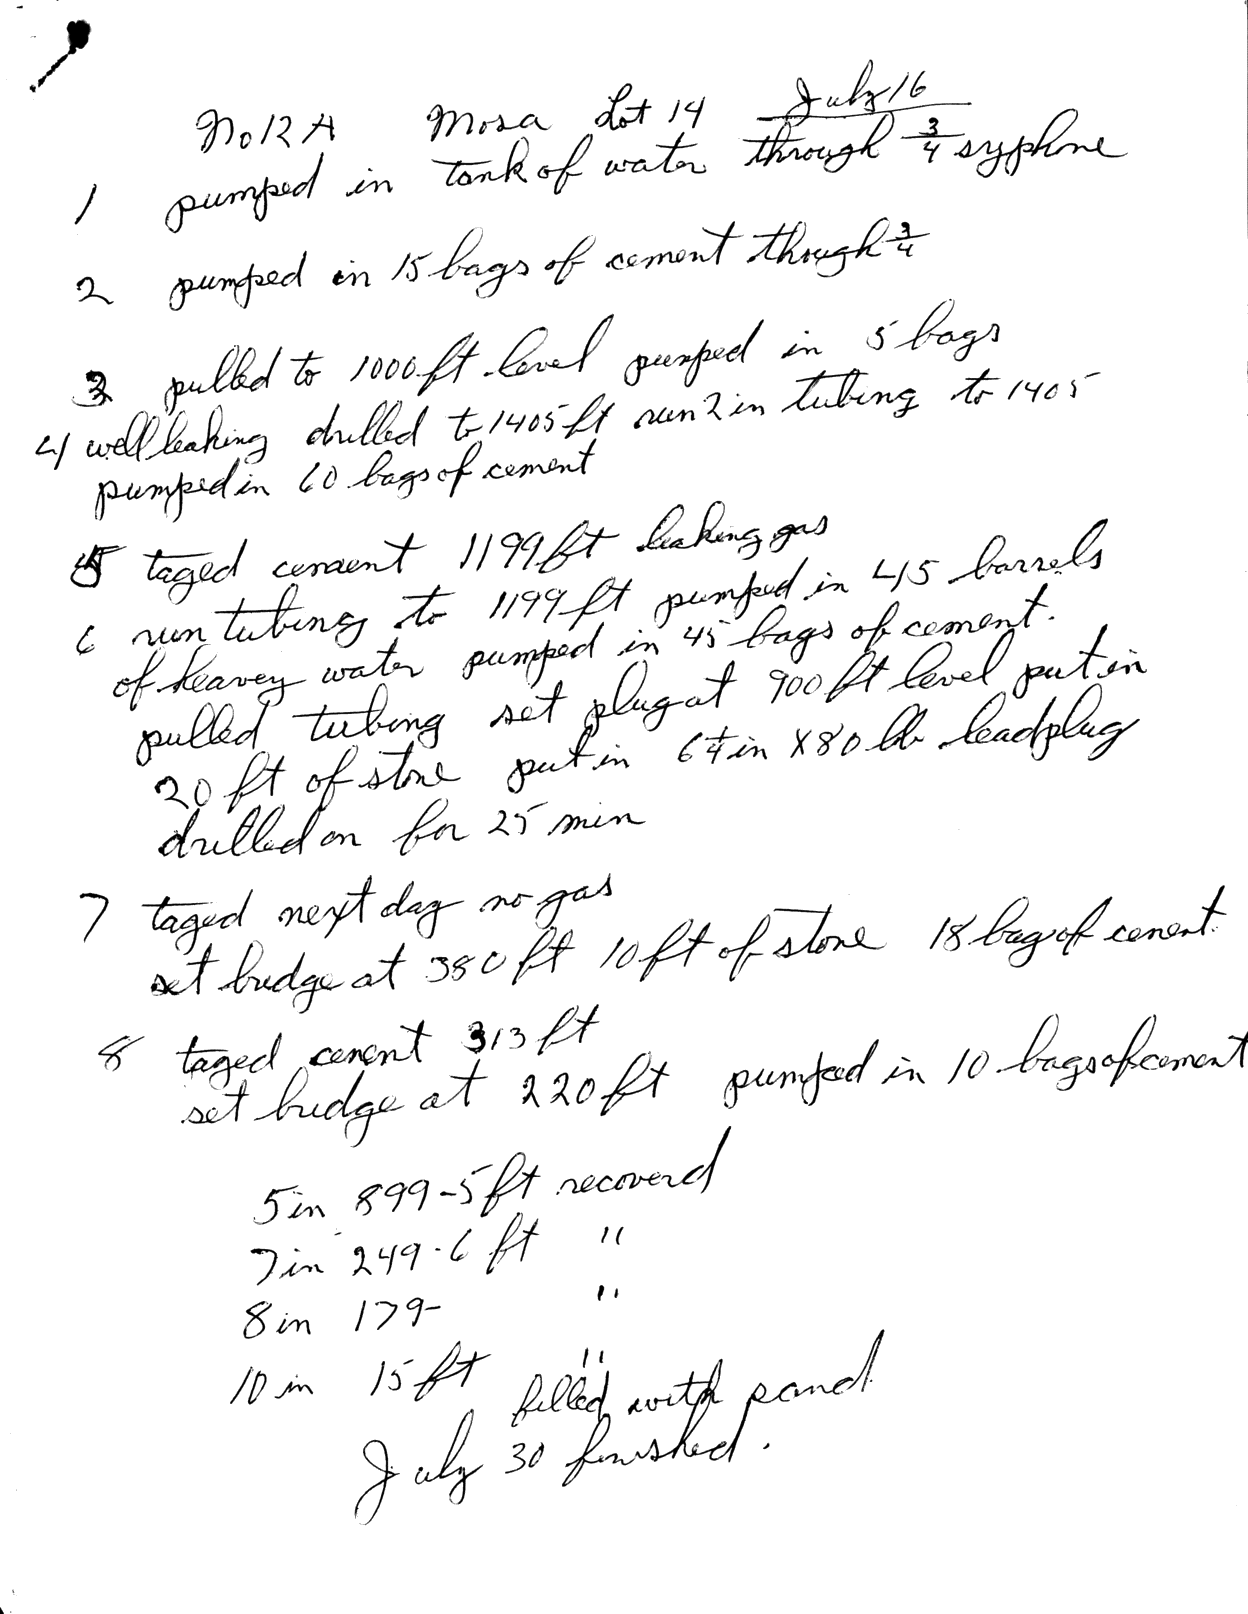 No 12 A Mosa Lot 14 July 16
1 pumped in tank of water through 3/4 syphone
2 pumped in 15 bags of cement through 3/4
3 pulled to 1000 ft level pumped in 5 bags
4 well leaking drilled to 1405 ft run 2 in tubing to 1405
pumped in 60 bags of cement
5 taged cement 1199 ft leaking gas
6 run tubing to 1199 ft pumped in 45 barrels
of heavey water pumped in 45 bags of cement.
pulled tubing set plug at 900 ft level put in
20 ft of stone put in 6 1/4 in X 80 lb lead plug
drilled on for 25 min
7 taged next day no gas
set bridge at 380 ft 10 ft of stone 18 bag of cement.
8 taged cement 313 ft
set bridge at 220 ft pumped in 10 bags of cement
5 in 899-5 ft recoverd
7 in 249-6 ft "
8 in 179- "
10 in 15 ft "
filled with sand
July 30 finished.